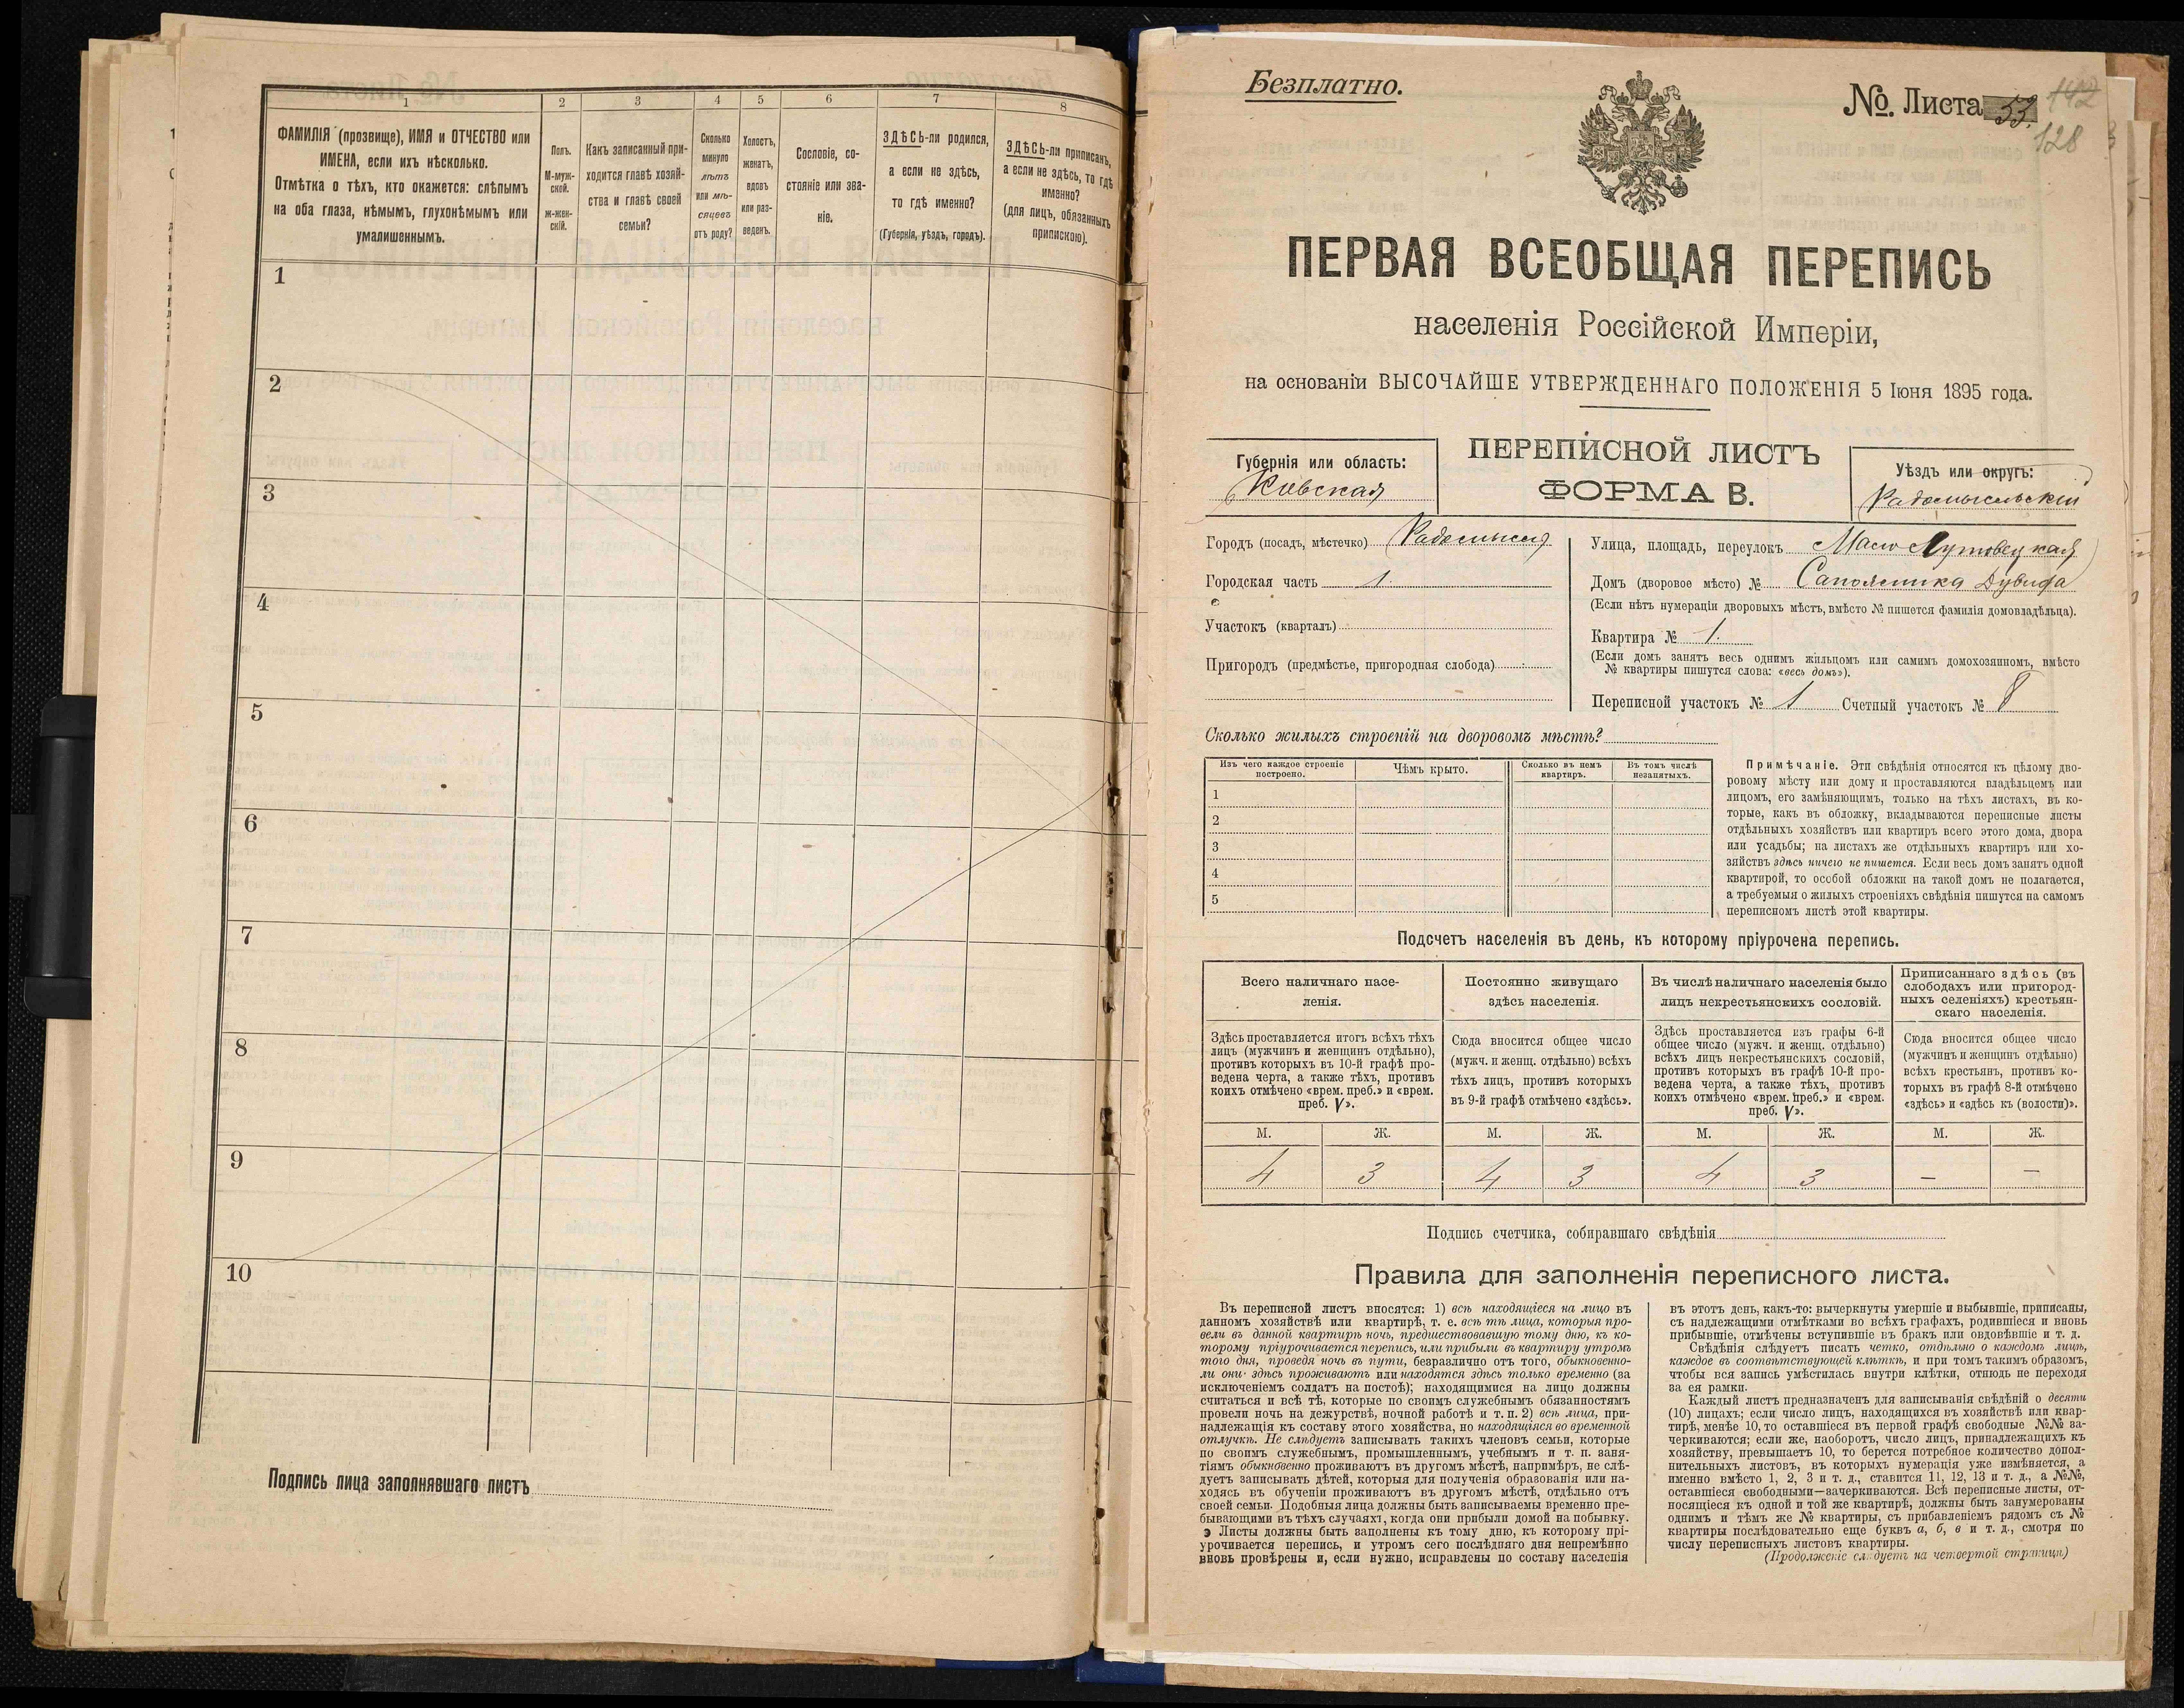 1
2
3
4
5
6
7
8
ФАМИЛІЯ (прозвище), ИМЯ и ОТЧЕСТВО или
ИМЕНА, если ихъ нѣсколько.
Отмѣтка о тѣхъ, кто окажется: слѣпымъ
на оба глаза, нѣмымъ, глухонѣмымъ или
умалишеннымъ.
Полъ.
М-муж-
ской.
ж-жен-
скій.
Какъ записанный при-
ходится главѣ хозяй-
ства и главѣ своей
семьи?
Сколько
минуло
лѣтъ
или мѣ-
сяцевъ
отъ роду?
Холостъ,
женатъ,
вдовъ
или раз-
веденъ.
Сословіе, со-
стояніе или зва-
ніе.
ЗДѢСЬ-ли родился,
а если не здѣсь,
то гдѣ именно?
(Губернія, уѣздъ, городъ).
ЗДѢСЬ-ли приписанъ,
а если не здѣсь, то гдѣ
именно?
(для лицъ, обязанныхъ
припискою).
1
2
3
4
5
6
7
8
9
10
Подпись лица заполнявшаго листъ
Безплатно.
№ Листа 53.
142
128
ПЕРВАЯ ВСЕОБЩАЯ ПЕРЕПИСЬ
населенія Россійской Имперіи,
на основаніи ВЫСОЧАЙШЕ УТВЕРЖДЕННАГО ПОЛОЖЕНІЯ 5 Іюня 1895 года.
Губернія или область:
Кіевская
ПЕРЕПИСНОЙ ЛИСТЪ
ФОРМА В.
Уѣздъ или округъ:
Радомысльскій
Городъ (посадъ, мѣстечко) Радомысль
Городская часть 1.
Участокъ (кварталъ)
Пригородъ (предмѣстье, пригородная слобода)
Улица, площадь, переулокъ
Домъ (дворовое мѣсто) № Дувида
(Если нѣтъ нумераціи дворовыхъ мѣстъ, вмѣсто № пишется фамилія домовладѣльца).
Квартира № 1.
(Если домъ занятъ весь однимъ жильцомъ или самимъ домохозяиномъ, вмѣсто
№ квартиры пишутся слова: «весь домъ»).
Переписной участокъ № 1 Счетный участокъ № 8
Сколько жилыхъ строеній на дворовомъ мѣстѣ?
Изъ чего каждое строеніе
построено.
Чѣмъ крыто.
Сколько въ немъ
квартиръ.
Въ томъ числѣ
незанятыхъ.
1
2
3
4
5
Примѣчаніе. Эти свѣдѣнія относятся къ цѣлому дво-
ровому мѣсту или дому и проставляются владѣльцемъ или
лицомъ, его замѣняющимъ, только на тѣхъ листахъ, въ ко-
торые, какъ въ обложку, вкладываются переписные листы
отдѣльныхъ хозяйствъ или квартиръ всего этого дома, двора
или усадьбы; на листахъ же отдѣльныхъ квартиръ или хо-
зяйствъ здѣсь ничего не пишется. Если весь домъ занятъ одной
квартирой, то особой обложки на такой домъ не полагается,
а требуемыя о жилыхъ строеніяхъ свѣдѣнія пишутся на самомъ
переписномъ листѣ этой квартиры.
Подсчетъ населенія въ день, къ которому пріурочена перепись.
Всего наличнаго насе-
ленія.
Постоянно живущаго
здѣсь населенія.
Въ числѣ наличнаго населенія было
лицъ некрестьянскихъ сословій.
Приписаннаго здѣсь (въ
слободахъ или пригород-
ныхъ селеніяхъ) крестьян-
скаго населенія.
Здѣсь проставляется итогъ всѣхъ тѣхъ
лицъ (мужчинъ и женщинъ отдѣльно),
противъ которыхъ въ 10-й графѣ про-
ведена черта, а также тѣхъ, противъ
коихъ отмѣчено «врем. преб.» и «врем.
преб. V».
Сюда вносится общее число
(мужч. и женщ. отдѣльно) всѣхъ
тѣхъ лицъ, противъ которыхъ
въ 9-й графѣ отмѣчено «здѣсь».
Здѣсь проставляется изъ графы 6-й
общее число (мужч. и женщ. отдѣльно)
всѣхъ лицъ некрестьянскихъ сословій,
противъ которыхъ въ графѣ 10-й про-
ведена черта, а также тѣхъ, противъ
коихъ отмѣчено «врем. преб.» и «врем.
преб. V».
Сюда вносится общее число
(мужчинъ и женщинъ отдѣльно)
всѣхъ крестьянъ, противъ ко-
торыхъ въ графѣ 8-й отмѣчено
«здѣсь» и «здѣсь къ (волости)».
М. Ж. М. Ж. М. Ж. М. Ж.
4 3 4 3 4 3 — —
Подпись счетчика, собиравшаго свѣдѣнія
Правила для заполненія переписного листа.
Въ переписной листъ вносятся: 1) всѣ находящіеся на лицо въ
данномъ хозяйствѣ или квартирѣ, т. е. всѣ тѣ лица, которыя про-
вели въ данной квартирѣ ночь, предшествовавшую тому дню, къ ко-
торому пріурочивается перепись, или прибыли въ квартиру утромъ
того дня, проведя ночь въ пути, безразлично отъ того, обыкновенно-
ли они здѣсь проживаютъ или находятся здѣсь только временно (за
исключеніемъ солдатъ на постоѣ); находящимися на лицо должны
считаться и всѣ тѣ, которые по своимъ служебнымъ обязанностямъ
провели ночь на дежурствѣ, ночной работѣ и т. п. 2) всѣ лица, при-
надлежащія къ составу этого хозяйства, но находящіяся во временной
отлучкѣ. Не слѣдуетъ записывать такихъ членовъ семьи, которые
по своимъ служебнымъ, промышленнымъ, учебнымъ и т. п. заня-
тіямъ обыкновенно проживаютъ въ другомъ мѣстѣ, напримѣръ, не слѣ-
дуетъ записывать дѣтей, которыя для полученія образованія или на-
ходясь въ обученіи проживаютъ въ другомъ мѣстѣ, отдѣльно отъ
своей семьи. Подобныя лица должны быть записываемы временно пре-
бывающими въ тѣхъ случаяхъ, когда они прибыли домой на побывку.
Листы должны быть заполнены къ тому дню, къ которому прі-
урочивается перепись, и утромъ сего послѣдняго дня непремѣнно
вновь провѣрены и, если нужно, исправлены по составу населенія
въ этотъ день, какъ-то: вычеркнуты умершіе и выбывшіе, приписаны,
съ надлежащими отмѣтками во всѣхъ графахъ, родившіеся и вновь
прибывшіе, отмѣчены вступившіе въ бракъ или овдовѣвшіе и т. д.
Свѣдѣнія слѣдуетъ писать четко, отдѣльно о каждомъ лицѣ,
каждое въ соотвѣтствующей клѣткѣ, и при томъ такимъ образомъ,
чтобы вся запись умѣстилась внутри клѣтки, отнюдь не переходя
за ея рамки.
Каждый листъ предназначенъ для записыванія свѣдѣній о десяти
(10) лицахъ; если число лицъ, находящихся въ хозяйствѣ или квар-
тирѣ, менѣе 10, то оставшіеся въ первой графѣ свободные №№ за-
черкиваются; если же, наоборотъ, число лицъ, принадлежащихъ къ
хозяйству, превышаетъ 10, то берется потребное количество допол-
нительныхъ листовъ, въ которыхъ нумерація уже измѣняется, а
именно вмѣсто 1, 2, 3 и т. д., ставится 11, 12, 13 и т. д., а №№,
оставшіеся свободными—зачеркиваются. Всѣ переписные листы, от-
носящіеся къ одной и той же квартирѣ, должны быть занумерованы
однимъ и тѣмъ же № квартиры, съ прибавленіемъ рядомъ съ №
квартиры послѣдовательно еще буквъ а, б, в и т. д., смотря по
числу переписныхъ листовъ квартиры.
(Продолженіе слѣдуетъ на четвертой страницѣ)